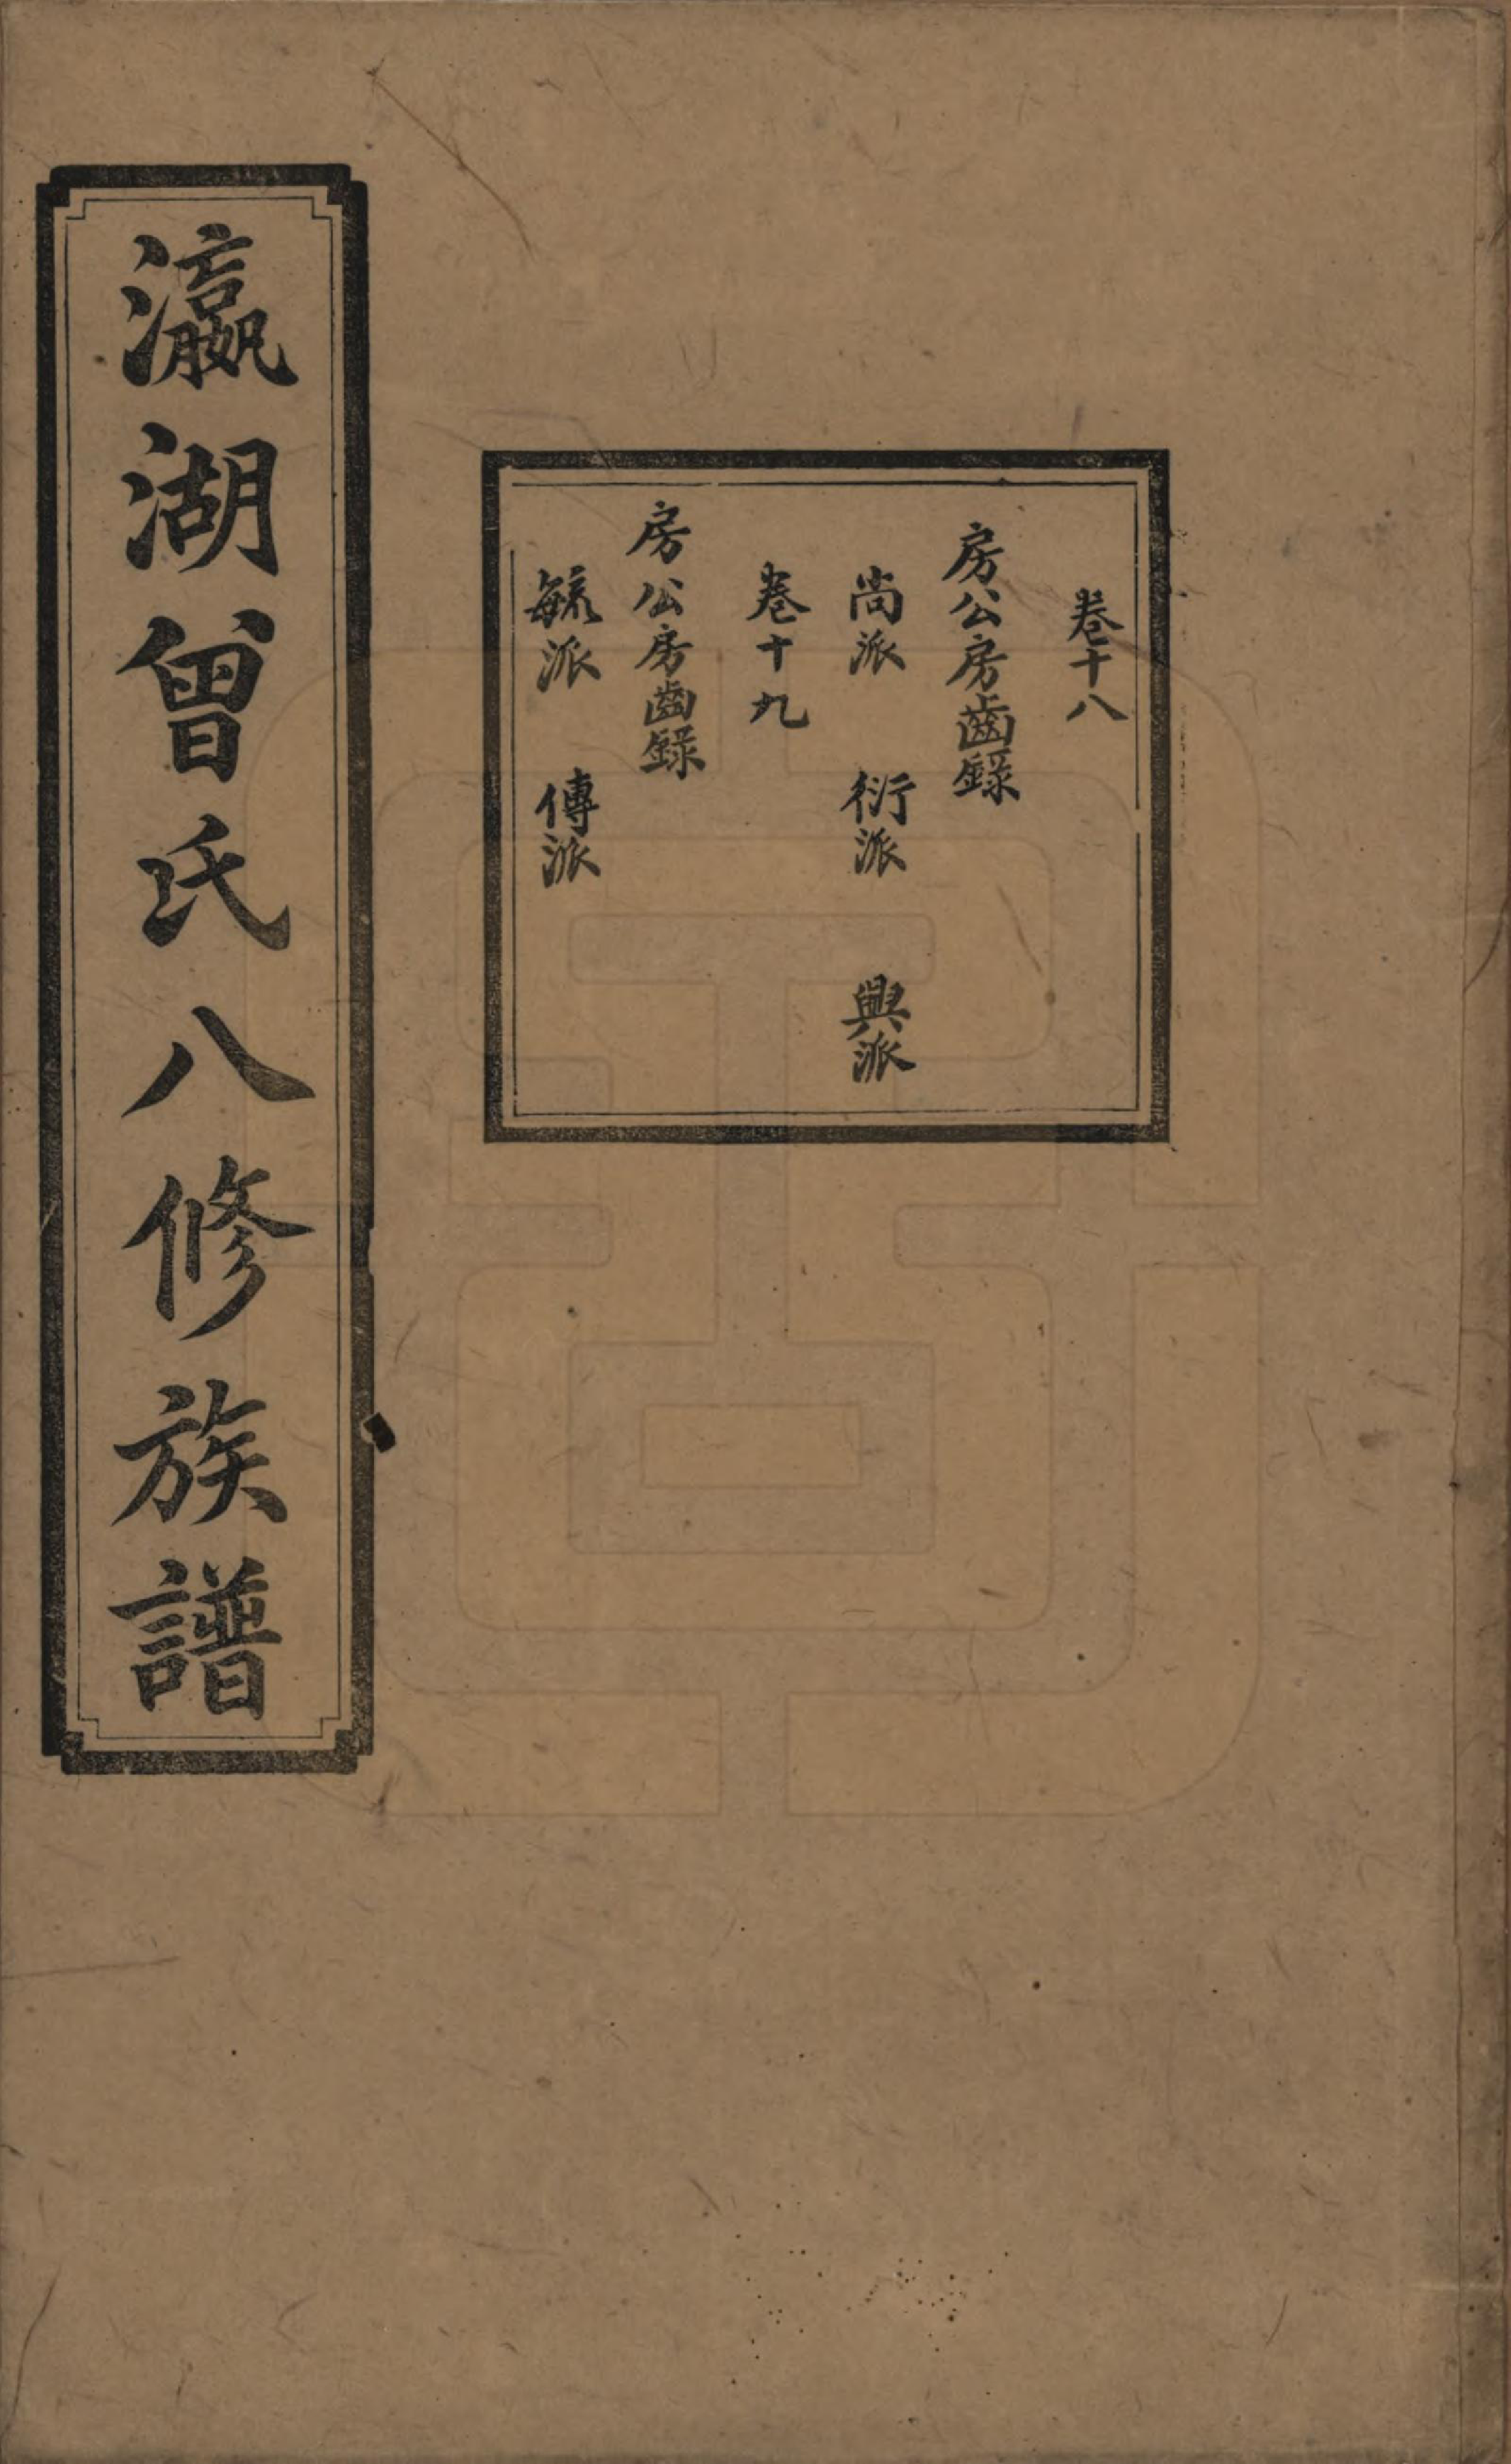 卷十八
房公房齒錄
尚派 衍派 興派
卷十九
房公房齒錄
毓派 傳派
瀛湖曾氏八修族譜